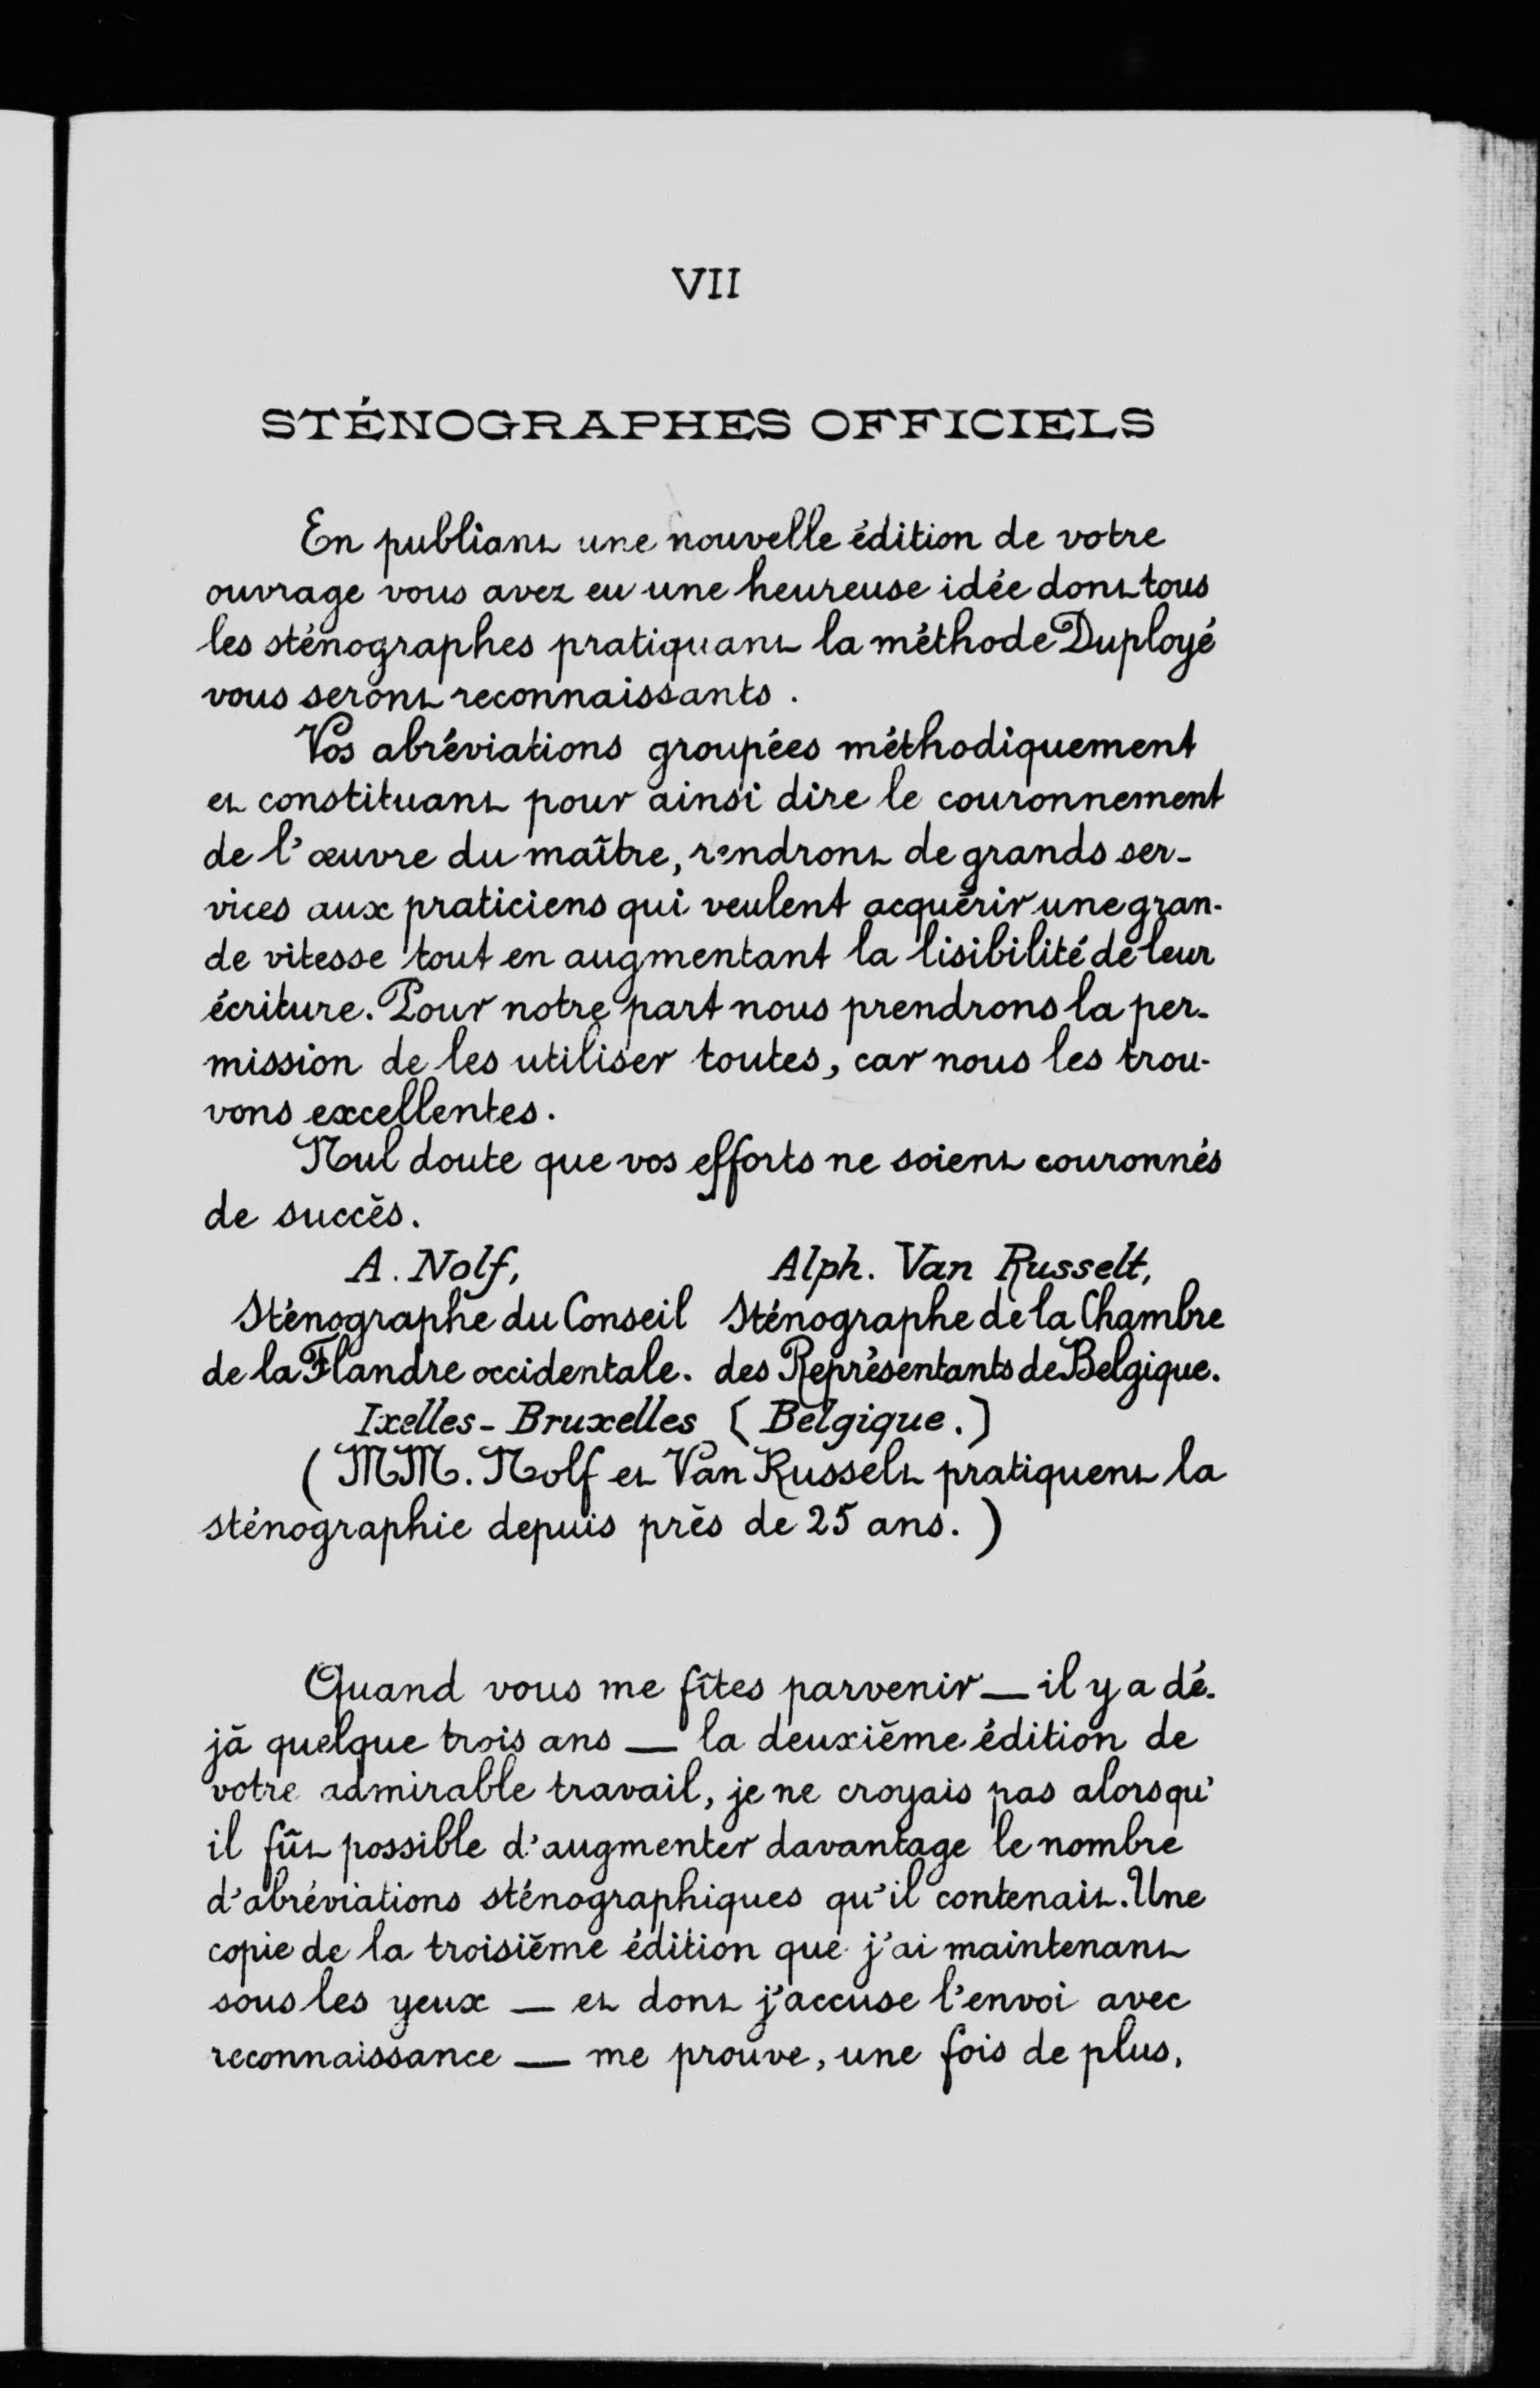 VII
STÉNOGRAPHES OFFICIELS
En publiant une nouvelle édition de votre
ouvrage vous avez eu une heureuse idée dont tous
les sténographes pratiquant la méthode Duployé
vous seront reconnaissants.
Vos abréviations groupées méthodiquement
et constituant pour ainsi dire le couronnement
de l'œuvre du maître, rendront de grands ser-
vices aux praticiens qui veulent acquérir une gran-
de vitesse tout en augmentant la lisibilité de leur
écriture. Pour notre part nous prendrons la per-
mission de les utiliser toutes, car nous les trou-
vons excellentes.
Nul doute que vos efforts ne soient couronnés
de succès.
A. Nolf, Alph. Van Russelt,
Sténographe du Conseil Sténographe de la Chambre
de la Flandre occidentale. des Représentants de Belgique.
Ixelles-Bruxelles (Belgique.)
(MM. Nolf et Van Russelt pratiquent la
sténographie depuis près de 25 ans.)
Quand vous me fîtes parvenir — il y a dé-
jà quelque trois ans — la deuxième édition de
votre admirable travail, je ne croyais pas alors qu'
il fût possible d'augmenter davantage le nombre
d'abréviations sténographiques qu'il contenait. Une
copie de la troisième édition que j'ai maintenant
sous les yeux — et dont j'accuse l'envoi avec
reconnaissance — me prouve, une fois de plus,